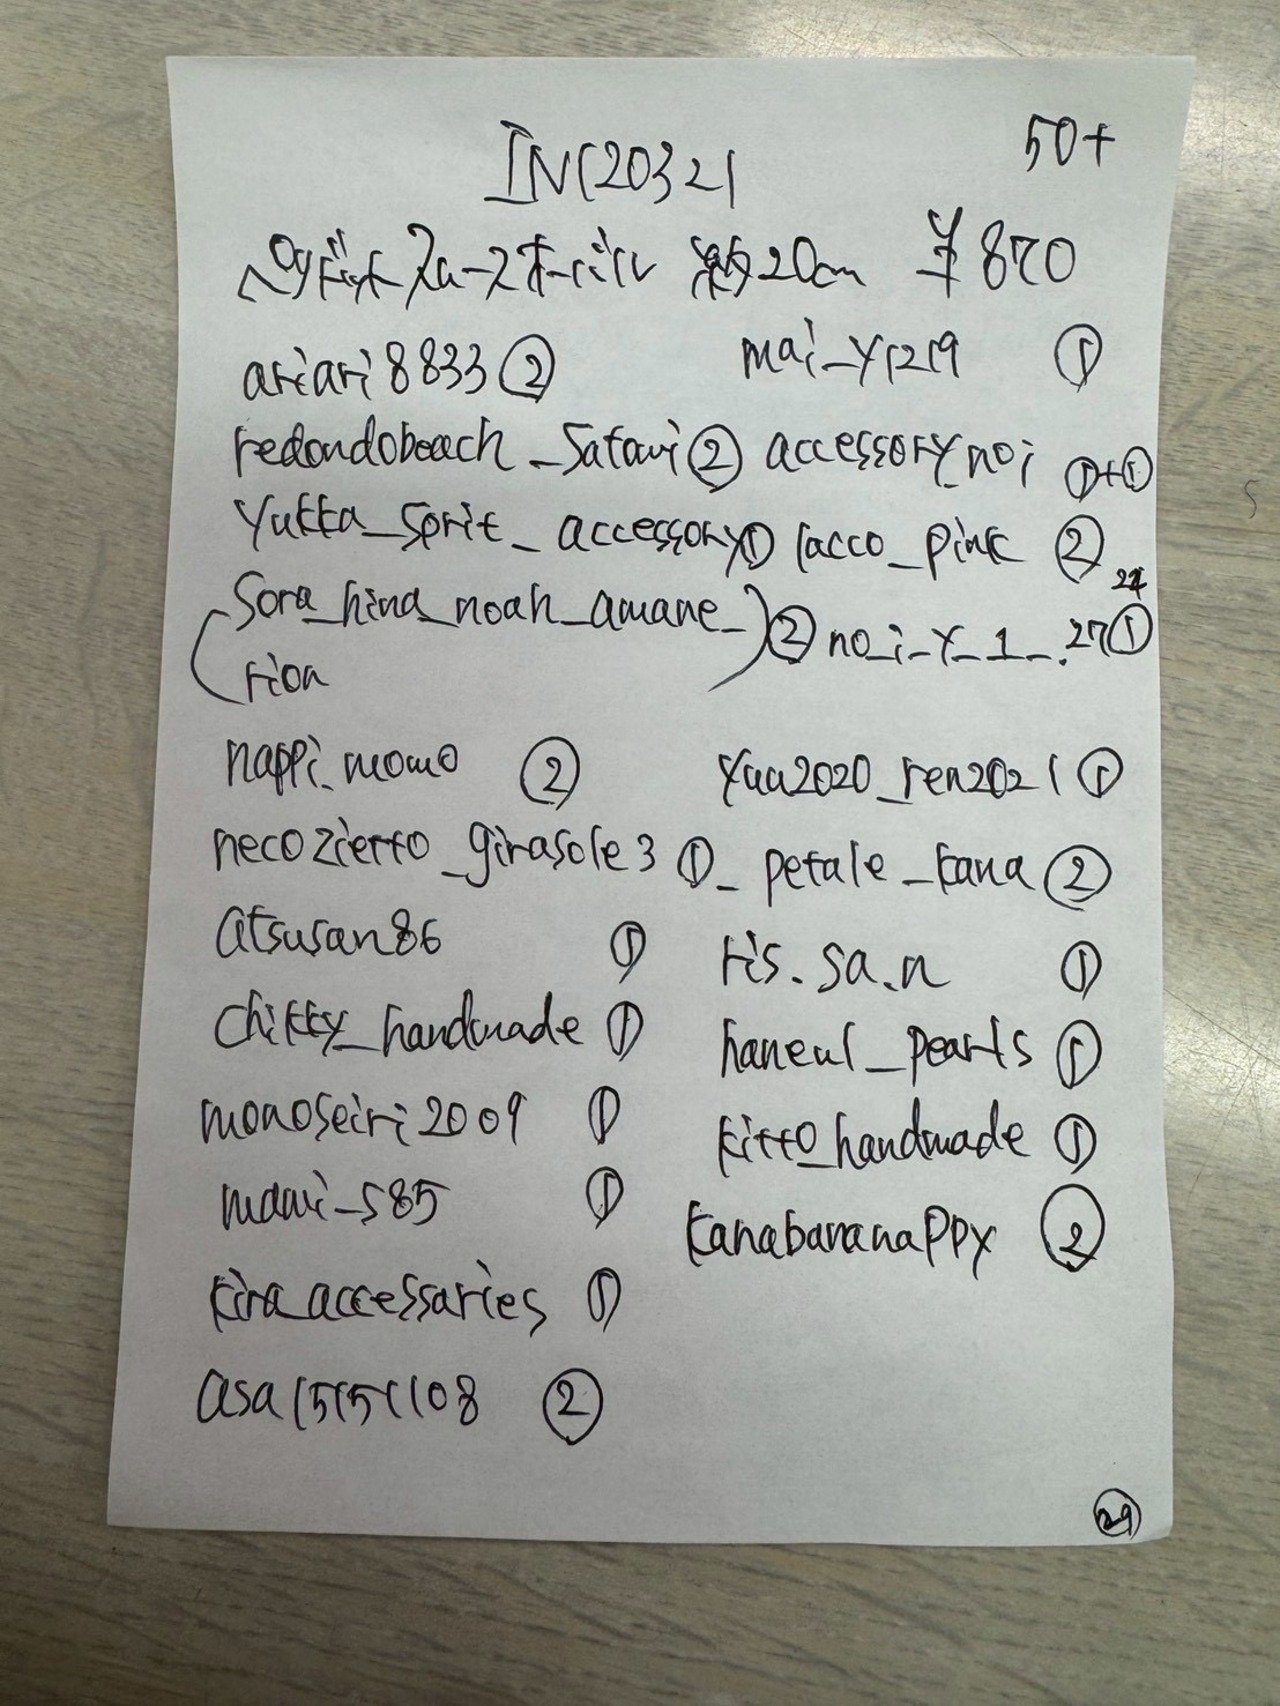 INC20321
50+
約20cm ¥870
ariari8833 ②
mai_y1219 ①
redondobeach_satomi ②
accessory_noi ①+①
yukka_sprit_accessory ①
lacco_pink ②
(sora_hina_noah_amane_
rion) ②
no_i_y_1_.27 ①
nappi_momo ②
yuu2020_ren2021 ①
necozietto_girasole3 ①
_petale_kana ②
atsusan86 ①
ris.sa.n ①
chikky_handmade ①
haneul_pearls ①
monoseiri2009 ①
kitto_handmade ①
mami_s85 ①
kanabananappy ②
kira_accessaries ①
asa15151108 ②